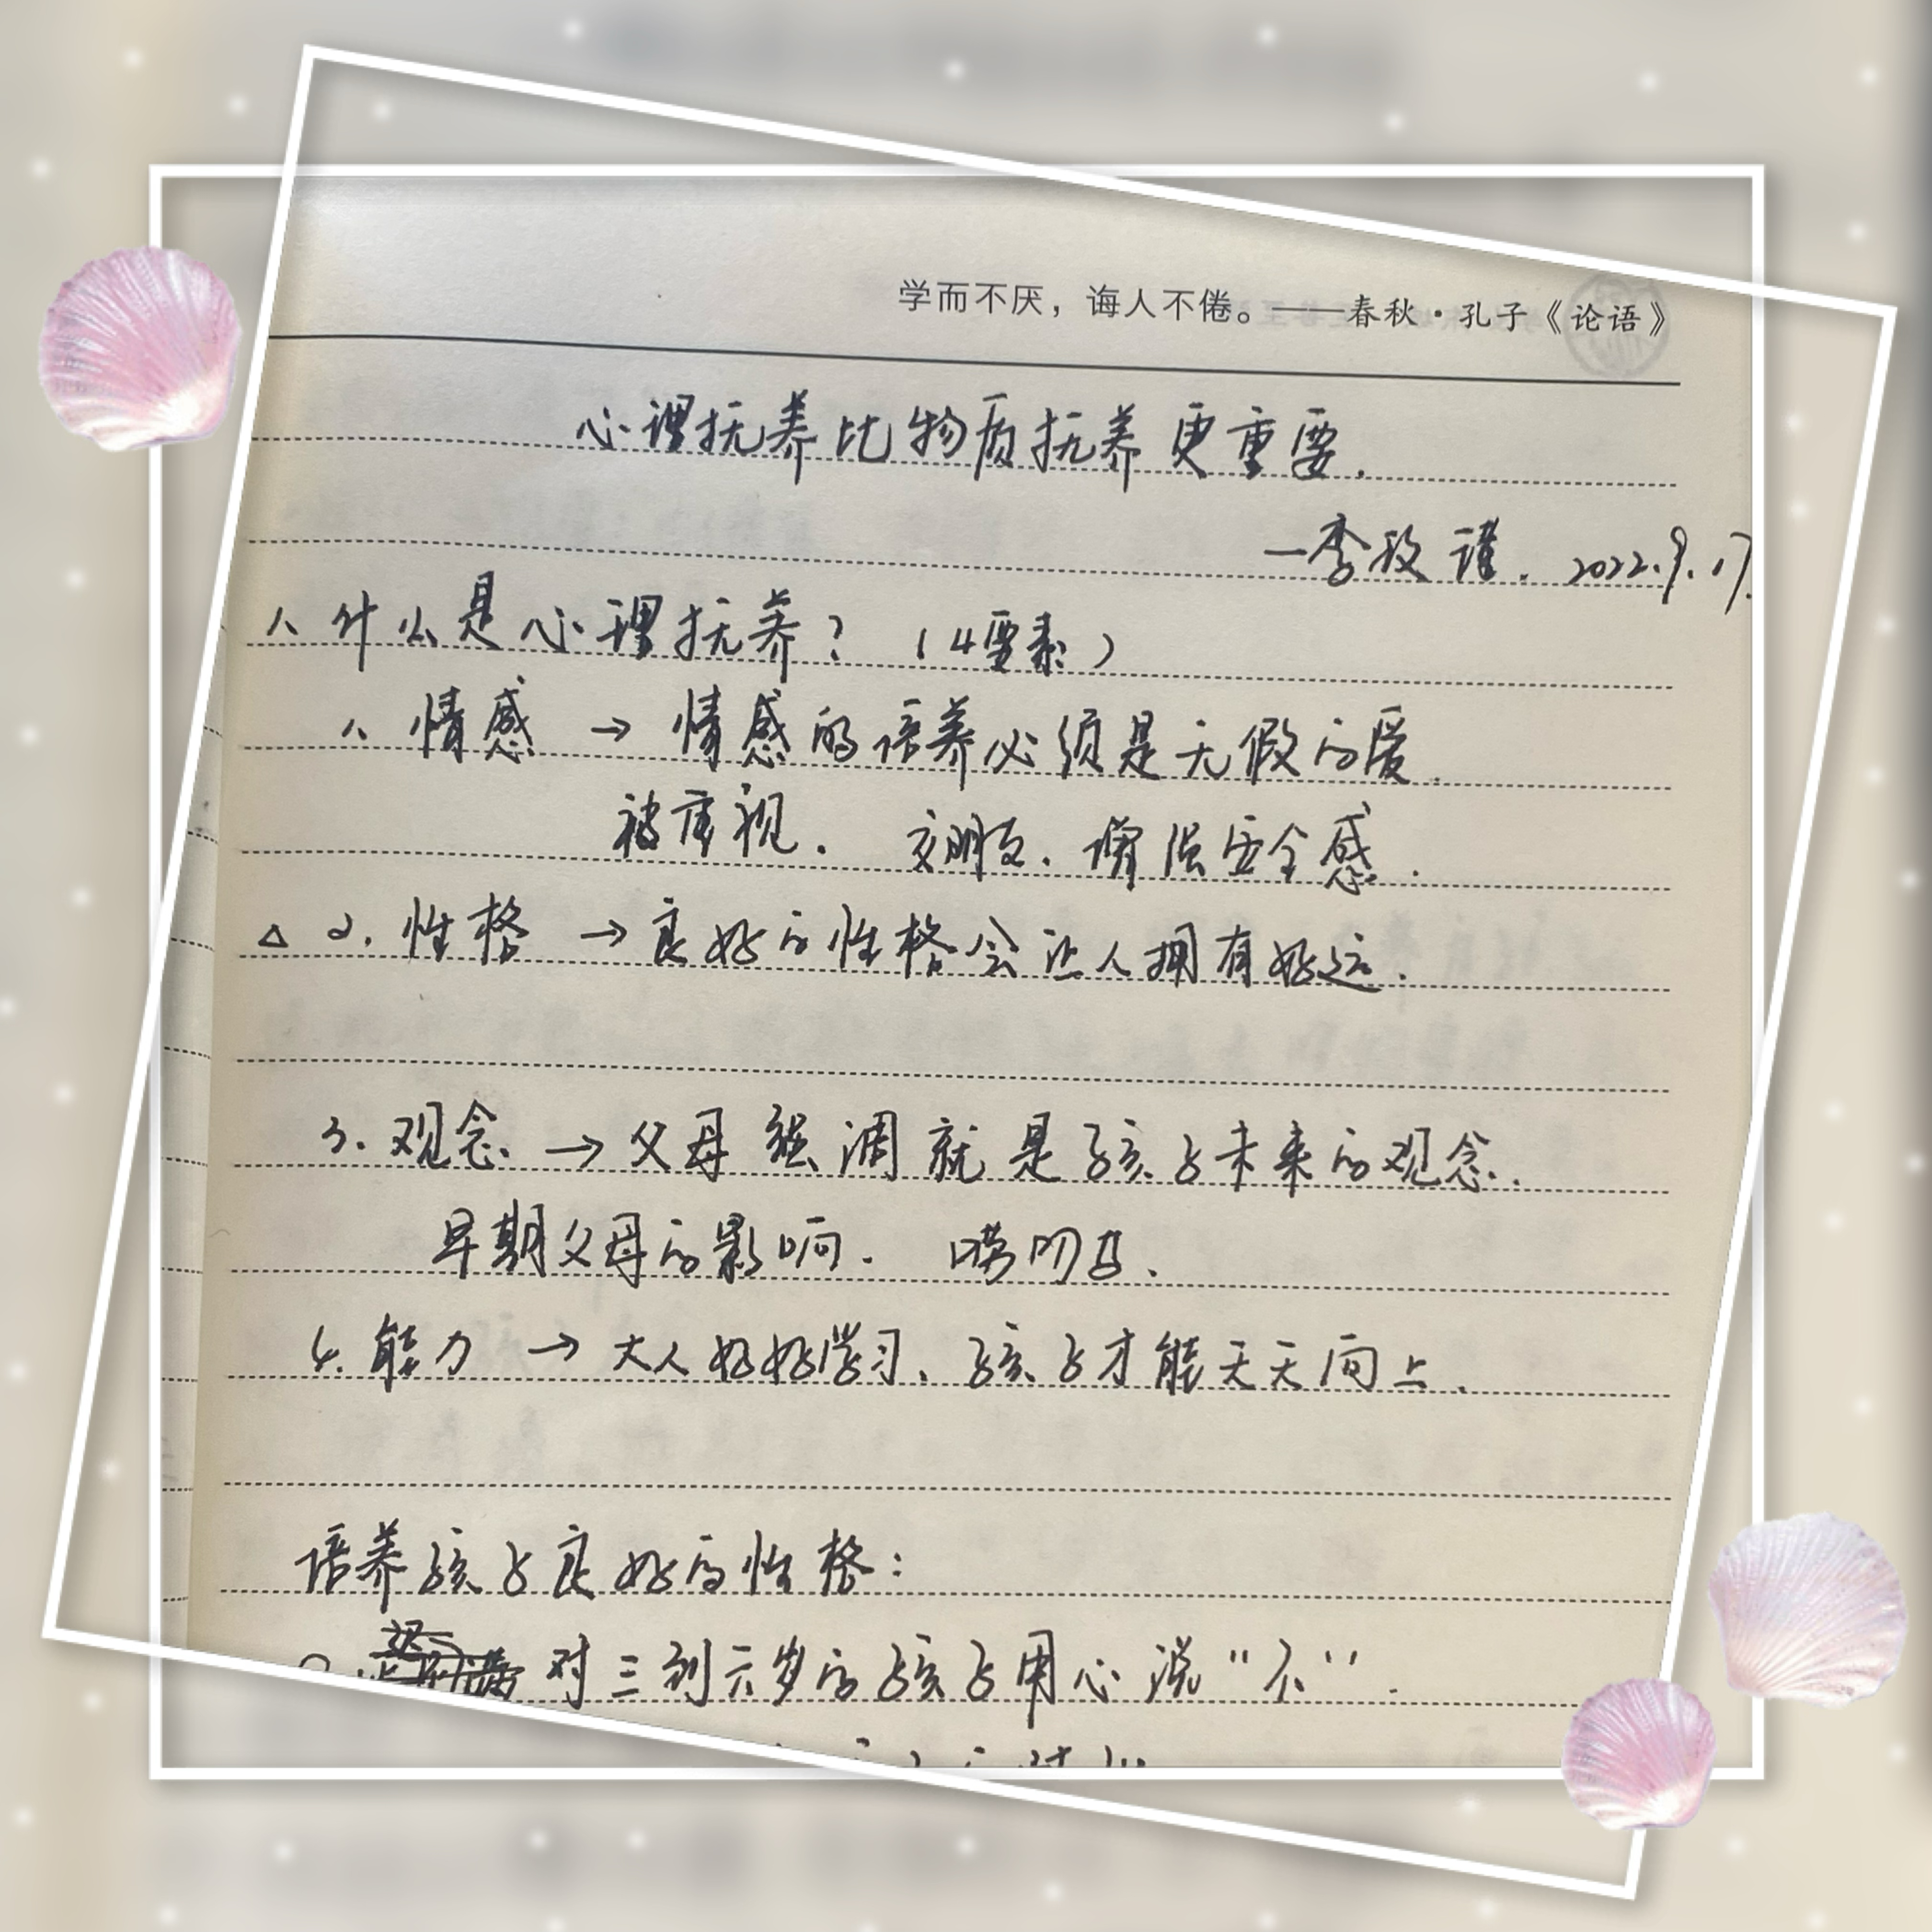 学而不厌，诲人不倦。——春秋·孔子《论语》
心理抚养比物质抚养更重要.
—李玫谨. 2022.9.17.
1、什么是心理抚养？（4要素）
1、情感 → 情感的培养必须是无假的爱.
被重视. 交朋友. 增强安全感.
△ 2. 性格 → 良好的性格会让人拥有好运.
3. 观念 → 父母强调就是孩子未来的观念.
早期父母的影响. 唠叨
4. 能力 → 大人好好学习、孩子才能天天向上.
培养孩子良好的性格：
对三到六岁的孩子用心说“不”.